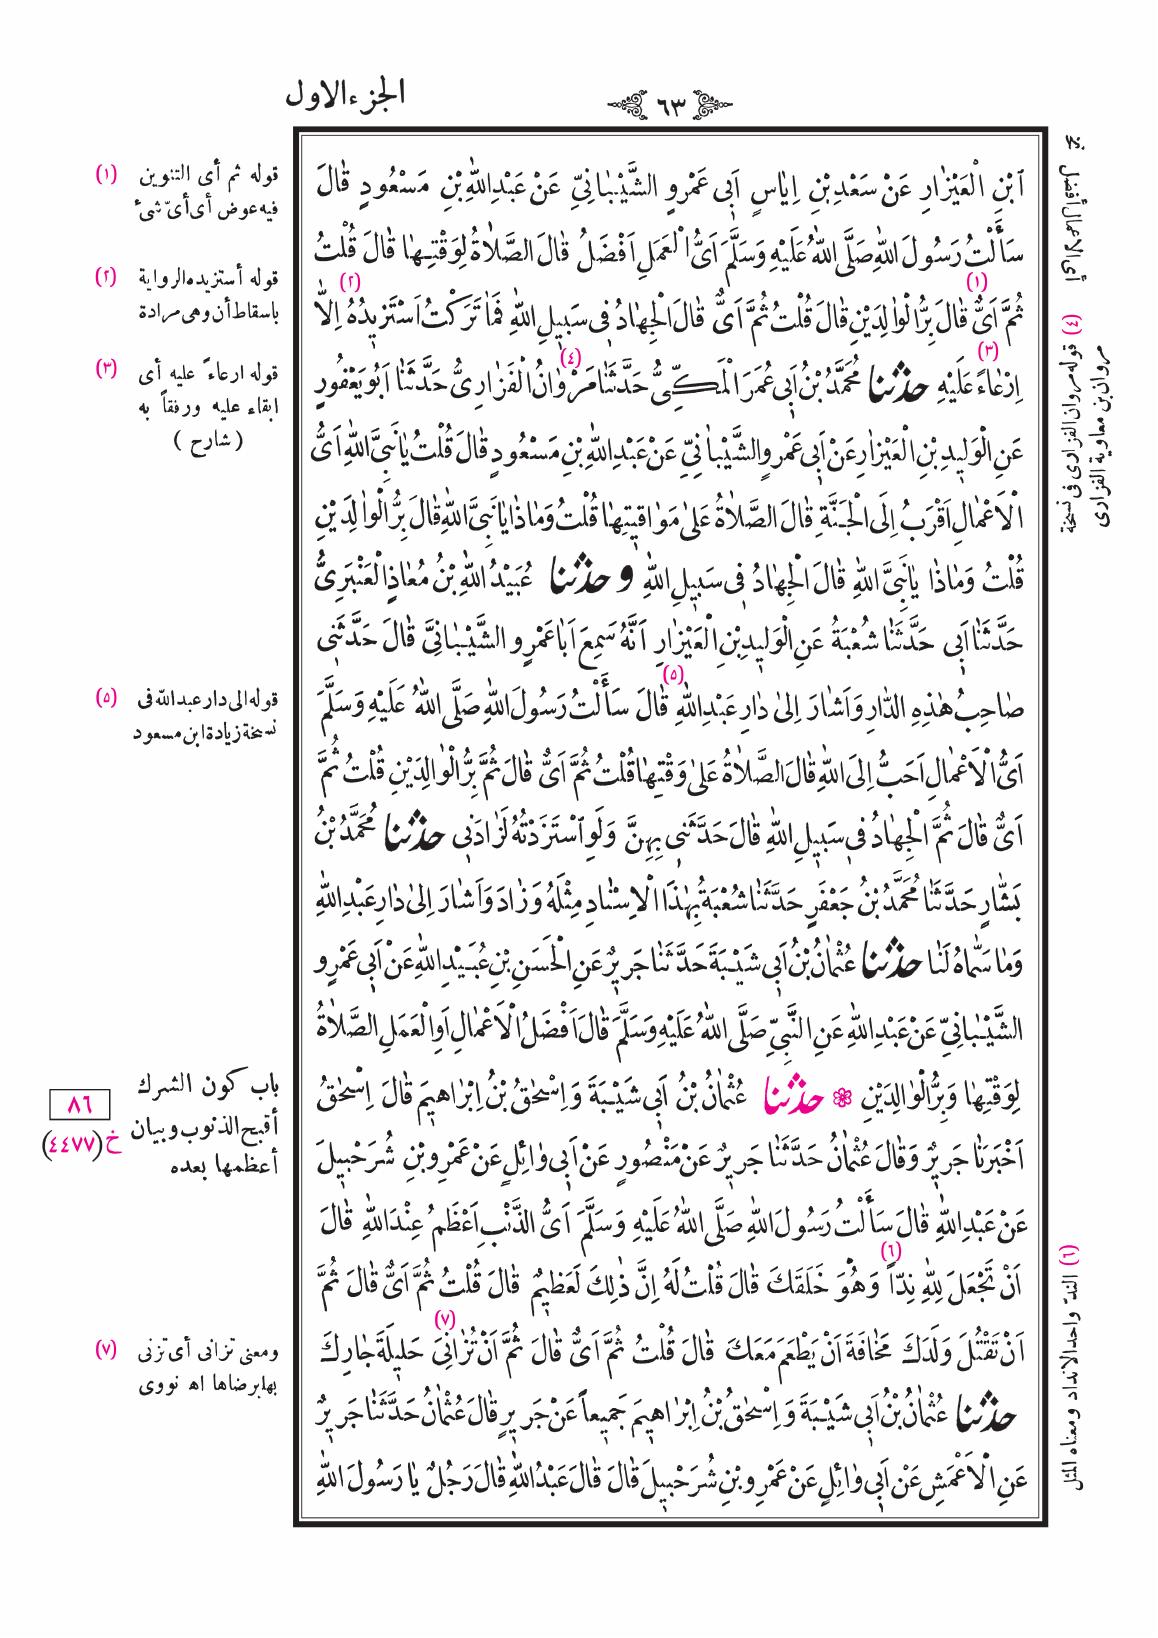 الجزء الاول
٦٣
ابْنِ الْعَيْزَارِ عَنْ سَعْدِ بْنِ اِيَاسٍ اَبِى عَمْرٍو الشَّيْبَانِىِّ عَنْ عَبْدِ اللهِ بْنِ مَسْعُودٍ قَالَ
سَأَلْتُ رَسُولَ اللهِ صَلَّى اللهُ عَلَيْهِ وَسَلَّمَ اَىُّ الْعَمَلِ اَفْضَلُ قَالَ الصَّلَاةُ لِوَقْتِهَا قَالَ قُلْتُ
ثُمَّ اَىٌّ (١) قَالَ بِرُّ الْوَالِدَيْنِ قَالَ قُلْتُ ثُمَّ اَىٌّ قَالَ الْجِهَادُ فِى سَبِيلِ اللهِ فَمَا تَرَكْتُ اَسْتَزِيدُهُ (٢) اِلَّا
اِرْعَاءً (٣) عَلَيْهِ حدثنا مُحَمَّدُ بْنُ اَبِى عُمَرَ الْمَكِّىُّ حَدَّثَنَا مَرْوَانُ (٤) الْفَزَارِىُّ حَدَّثَنَا اَبُو يَعْفُورٍ
عَنِ الْوَلِيدِ بْنِ الْعَيْزَارِ عَنْ اَبِى عَمْرٍو الشَّيْبَانِىِّ عَنْ عَبْدِ اللهِ بْنِ مَسْعُودٍ قَالَ قُلْتُ يَا نَبِىَّ اللهِ اَىُّ
الْاَعْمَالِ اَقْرَبُ اِلَى الْجَنَّةِ قَالَ الصَّلَاةُ عَلَى مَوَاقِيتِهَا قُلْتُ وَمَاذَا يَا نَبِىَّ اللهِ قَالَ بِرُّ الْوَالِدَيْنِ
قُلْتُ وَمَاذَا يَا نَبِىَّ اللهِ قَالَ الْجِهَادُ فِى سَبِيلِ اللهِ و حدثنا عُبَيْدُ اللهِ بْنُ مُعَاذٍ الْعَنْبَرِىُّ
حَدَّثَنَا اَبِى حَدَّثَنَا شُعْبَةُ عَنِ الْوَلِيدِ بْنِ الْعَيْزَارِ اَنَّهُ سَمِعَ اَبَا عَمْرٍو الشَّيْبَانِىَّ قَالَ حَدَّثَنِى
صَاحِبُ هٰذِهِ الدَّارِ وَاَشَارَ اِلَى دَارِ عَبْدِ اللهِ (٥) قَالَ سَأَلْتُ رَسُولَ اللهِ صَلَّى اللهُ عَلَيْهِ وَسَلَّمَ
اَىُّ الْاَعْمَالِ اَحَبُّ اِلَى اللهِ قَالَ الصَّلَاةُ عَلَى وَقْتِهَا قُلْتُ ثُمَّ اَىٌّ قَالَ ثُمَّ بِرُّ الْوَالِدَيْنِ قُلْتُ ثُمَّ
اَىٌّ قَالَ ثُمَّ الْجِهَادُ فِى سَبِيلِ اللهِ قَالَ حَدَّثَنِى بِهِنَّ وَلَوِ اسْتَزَدْتُهُ لَزَادَنِى حدثنا مُحَمَّدُ بْنُ
بَشَّارٍ حَدَّثَنَا مُحَمَّدُ بْنُ جَعْفَرٍ حَدَّثَنَا شُعْبَةُ بِهٰذَا الْاِسْنَادِ مِثْلَهُ وَزَادَ وَاَشَارَ اِلَى دَارِ عَبْدِ اللهِ
وَمَا سَمَّاهُ لَنَا حدثنا عُثْمَانُ بْنُ اَبِى شَيْبَةَ حَدَّثَنَا جَرِيرٌ عَنِ الْحَسَنِ بْنِ عُبَيْدِ اللهِ عَنْ اَبِى عَمْرٍو
الشَّيْبَانِىِّ عَنْ عَبْدِ اللهِ عَنِ النَّبِىِّ صَلَّى اللهُ عَلَيْهِ وَسَلَّمَ قَالَ اَفْضَلُ الْاَعْمَالِ اَوِ الْعَمَلِ الصَّلَاةُ
لِوَقْتِهَا وَبِرُّ الْوَالِدَيْنِ ❁ حدثنا عُثْمَانُ بْنُ اَبِى شَيْبَةَ وَاِسْحٰقُ بْنُ اِبْرَاهِيمَ قَالَ اِسْحٰقُ
اَخْبَرَنَا جَرِيرٌ وَقَالَ عُثْمَانُ حَدَّثَنَا جَرِيرٌ عَنْ مَنْصُورٍ عَنْ اَبِى وَائِلٍ عَنْ عَمْرِو بْنِ شُرَحْبِيلَ
عَنْ عَبْدِ اللهِ قَالَ سَأَلْتُ رَسُولَ اللهِ صَلَّى اللهُ عَلَيْهِ وَسَلَّمَ اَىُّ الذَّنْبِ اَعْظَمُ عِنْدَ اللهِ قَالَ
اَنْ تَجْعَلَ لِلهِ نِدّاً (٦) وَهُوَ خَلَقَكَ قَالَ قُلْتُ لَهُ اِنَّ ذٰلِكَ لَعَظِيمٌ قَالَ قُلْتُ ثُمَّ اَىٌّ قَالَ ثُمَّ
اَنْ تَقْتُلَ وَلَدَكَ مَخَافَةَ اَنْ يَطْعَمَ مَعَكَ قَالَ قُلْتُ ثُمَّ اَىٌّ قَالَ ثُمَّ اَنْ تُزَانِىَ (٧) حَلِيلَةَ جَارِكَ
حدثنا عُثْمَانُ بْنُ اَبِى شَيْبَةَ وَاِسْحٰقُ بْنُ اِبْرَاهِيمَ جَمِيعاً عَنْ جَرِيرٍ قَالَ عُثْمَانُ حَدَّثَنَا جَرِيرٌ
عَنِ الْاَعْمَشِ عَنْ اَبِى وَائِلٍ عَنْ عَمْرِو بْنِ شُرَحْبِيلَ قَالَ قَالَ عَبْدُ اللهِ قَالَ رَجُلٌ يَا رَسُولَ اللهِ
(١) قوله ثم أى التنوين
فيه عوض أى أىّ شئ
(٢) قوله أستزيده الرواية
باسقاط أن وهى مرادة
(٣) قوله ارعاءً عليه أى
ابقاء عليه ورفقاً به
( شارح )
(٥) قوله الى دار عبد الله فى
نسخة زيادة ابن مسعود
باب كون الشرك
أقبح الذنوب وبيان
أعظمها بعده
٨٦
خ (٤٤٧٧)
(٧) ومعنى تزانى أى تزنى
بها برضاها اه نووى
(٤) قوله مروان الفزارى فى نسخة
مروان بن معاوية الفزارى
(٦) الندّ واحد الانداد ومعناه المثل